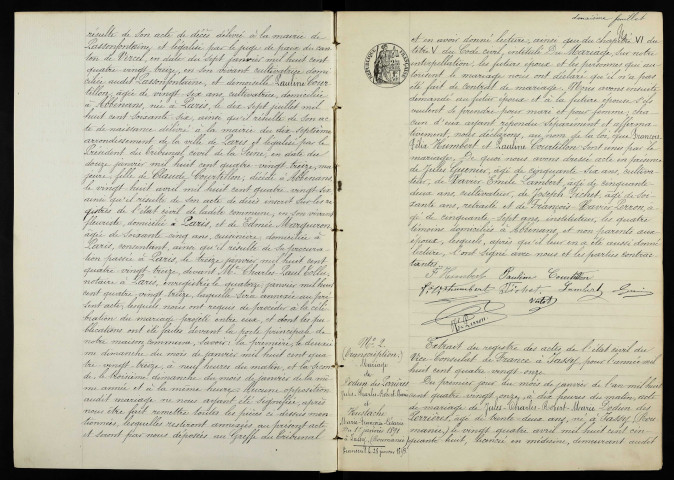 résulte de son acte de décès délivré à la mairie de
et légalisé par le juge de paix du can
ton de Vercel, en date du sept janvier mil huit cent
quatre vingt treize, en son vivant cultivatrice domi
ciliée audit et demoiselle Pauline Cour
tillon, agée de vingt six ans, cultivatrice, domiciliée
à Abbenans, née à Paris, le dix sept juillet mil
huit cent soixante six, ainsi qu'il résulte de son ac
te de naissance délivré à la mairie du dix septième
arrondissement de la ville de Paris et légalisé par le
Président du tribunal civil de la Seine, en date du
douze janvier mil huit cent quatre vingt treize, ma
jeure, fille de Claude Courtillon, décédé à Abbenans,
le vingt huit avril mil huit cent quatre vingt six
ainsi qu'il résulte de son acte de décès inscrit sur les re
gistres de l'état civil de ladite commune, en son vivant
domicilié à Paris, et de
agée de soixante cinq ans, cuisinière, domiciliée à
Paris, consentant, ainsi qu'il résulte de sa procura
tion passée à Paris, le treize janvier mil huit cent
quatre vingt treize, devant Me Charles Paul
notaire à Paris, enregistrée le quatorze janvier mil huit
cent quatre vingt treize, laquelle sera annexée au pré
sent acte; lesquels nous ont requis de procéder à la célé
bration du mariage projeté entre eux, et dont les pu
blications ont été faites devant la porte principale de
notre maison commune, savoir: la première, le
dimanche du mois de janvier mil huit cent qua
tre vingt treize, à neuf heures du matin, et la
le troisième dimanche du mois de janvier de la mê
me année et à la même heure. Aucune opposition
audit mariage ne nous ayant été signifiée, après
nous être fait remettre toutes les pièces ci dessus men
tionnées, lesquelles resteront annexées au présent acte
et seront par nous déposées au Greffe du tribunal
deuxième feuillet
et en avoir donné lecture, ainsi que du chapitre VI du
titre V du Code civil, intitulé Du Mariage, sur notre
interpellation, les futurs époux et les personnes qui au
torisent le mariage nous ont déclaré qu'il n'a pas
été fait de contrat de mariage. Nous avons ensuite
demandé au futur époux et à la future épouse s'ils
veulent se prendre pour mari et pour femme; cha
cun d'eux ayant répondu séparément et affirma
tivement, nous déclarons, au nom de la loi que François
Félix Humbert et Pauline Courtillon sont unis par le
mariage. De quoi nous avons dressé acte en présence
de Jules agé de cinquante six ans, cultiva
teur, de Xavier Emile Lambert, agé de cinquante
deux ans, cultivateur, de Joseph Pechot, agé de soi
xante ans, retraité et de François Xavier a
gé de cinquante sept ans, instituteur, les quatre
témoins domiciliés à Abbenans, et non parents aux
époux, lesquels, après qu'il leur en a été aussi donné
lecture, l'ont signé avec nous et les parties contrac
tantes.
F. Humbert Pauline Courtillon
Humbert Péchot Lambert
No 2.
Transcription
Mariage
de
Jules Charles Robert Marie
et
Marie Françoise
du 1er janvier 1891
à Jassy, (Roumanie)
Extrait du registre des actes de l'état civil du
Vice-Consulat de France à Jassy, pour l'année mil
huit cent quatre vingt onze.
Du premier jour du mois de janvier de l'an mil huit
cent quatre vingt onze, à dix heures du matin, acte
de mariage de Jules-Charles-Robert-Marie
agé de trente deux ans, né à Jassy (Rou
manie), le vingt quatre avril mil huit cent cin
quante huit, licencié en médecine, demeurant audit